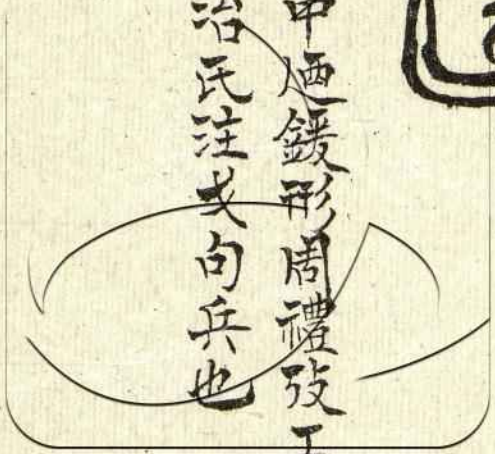 中廼鍰形周禮攷工
冶氏注戈句兵也